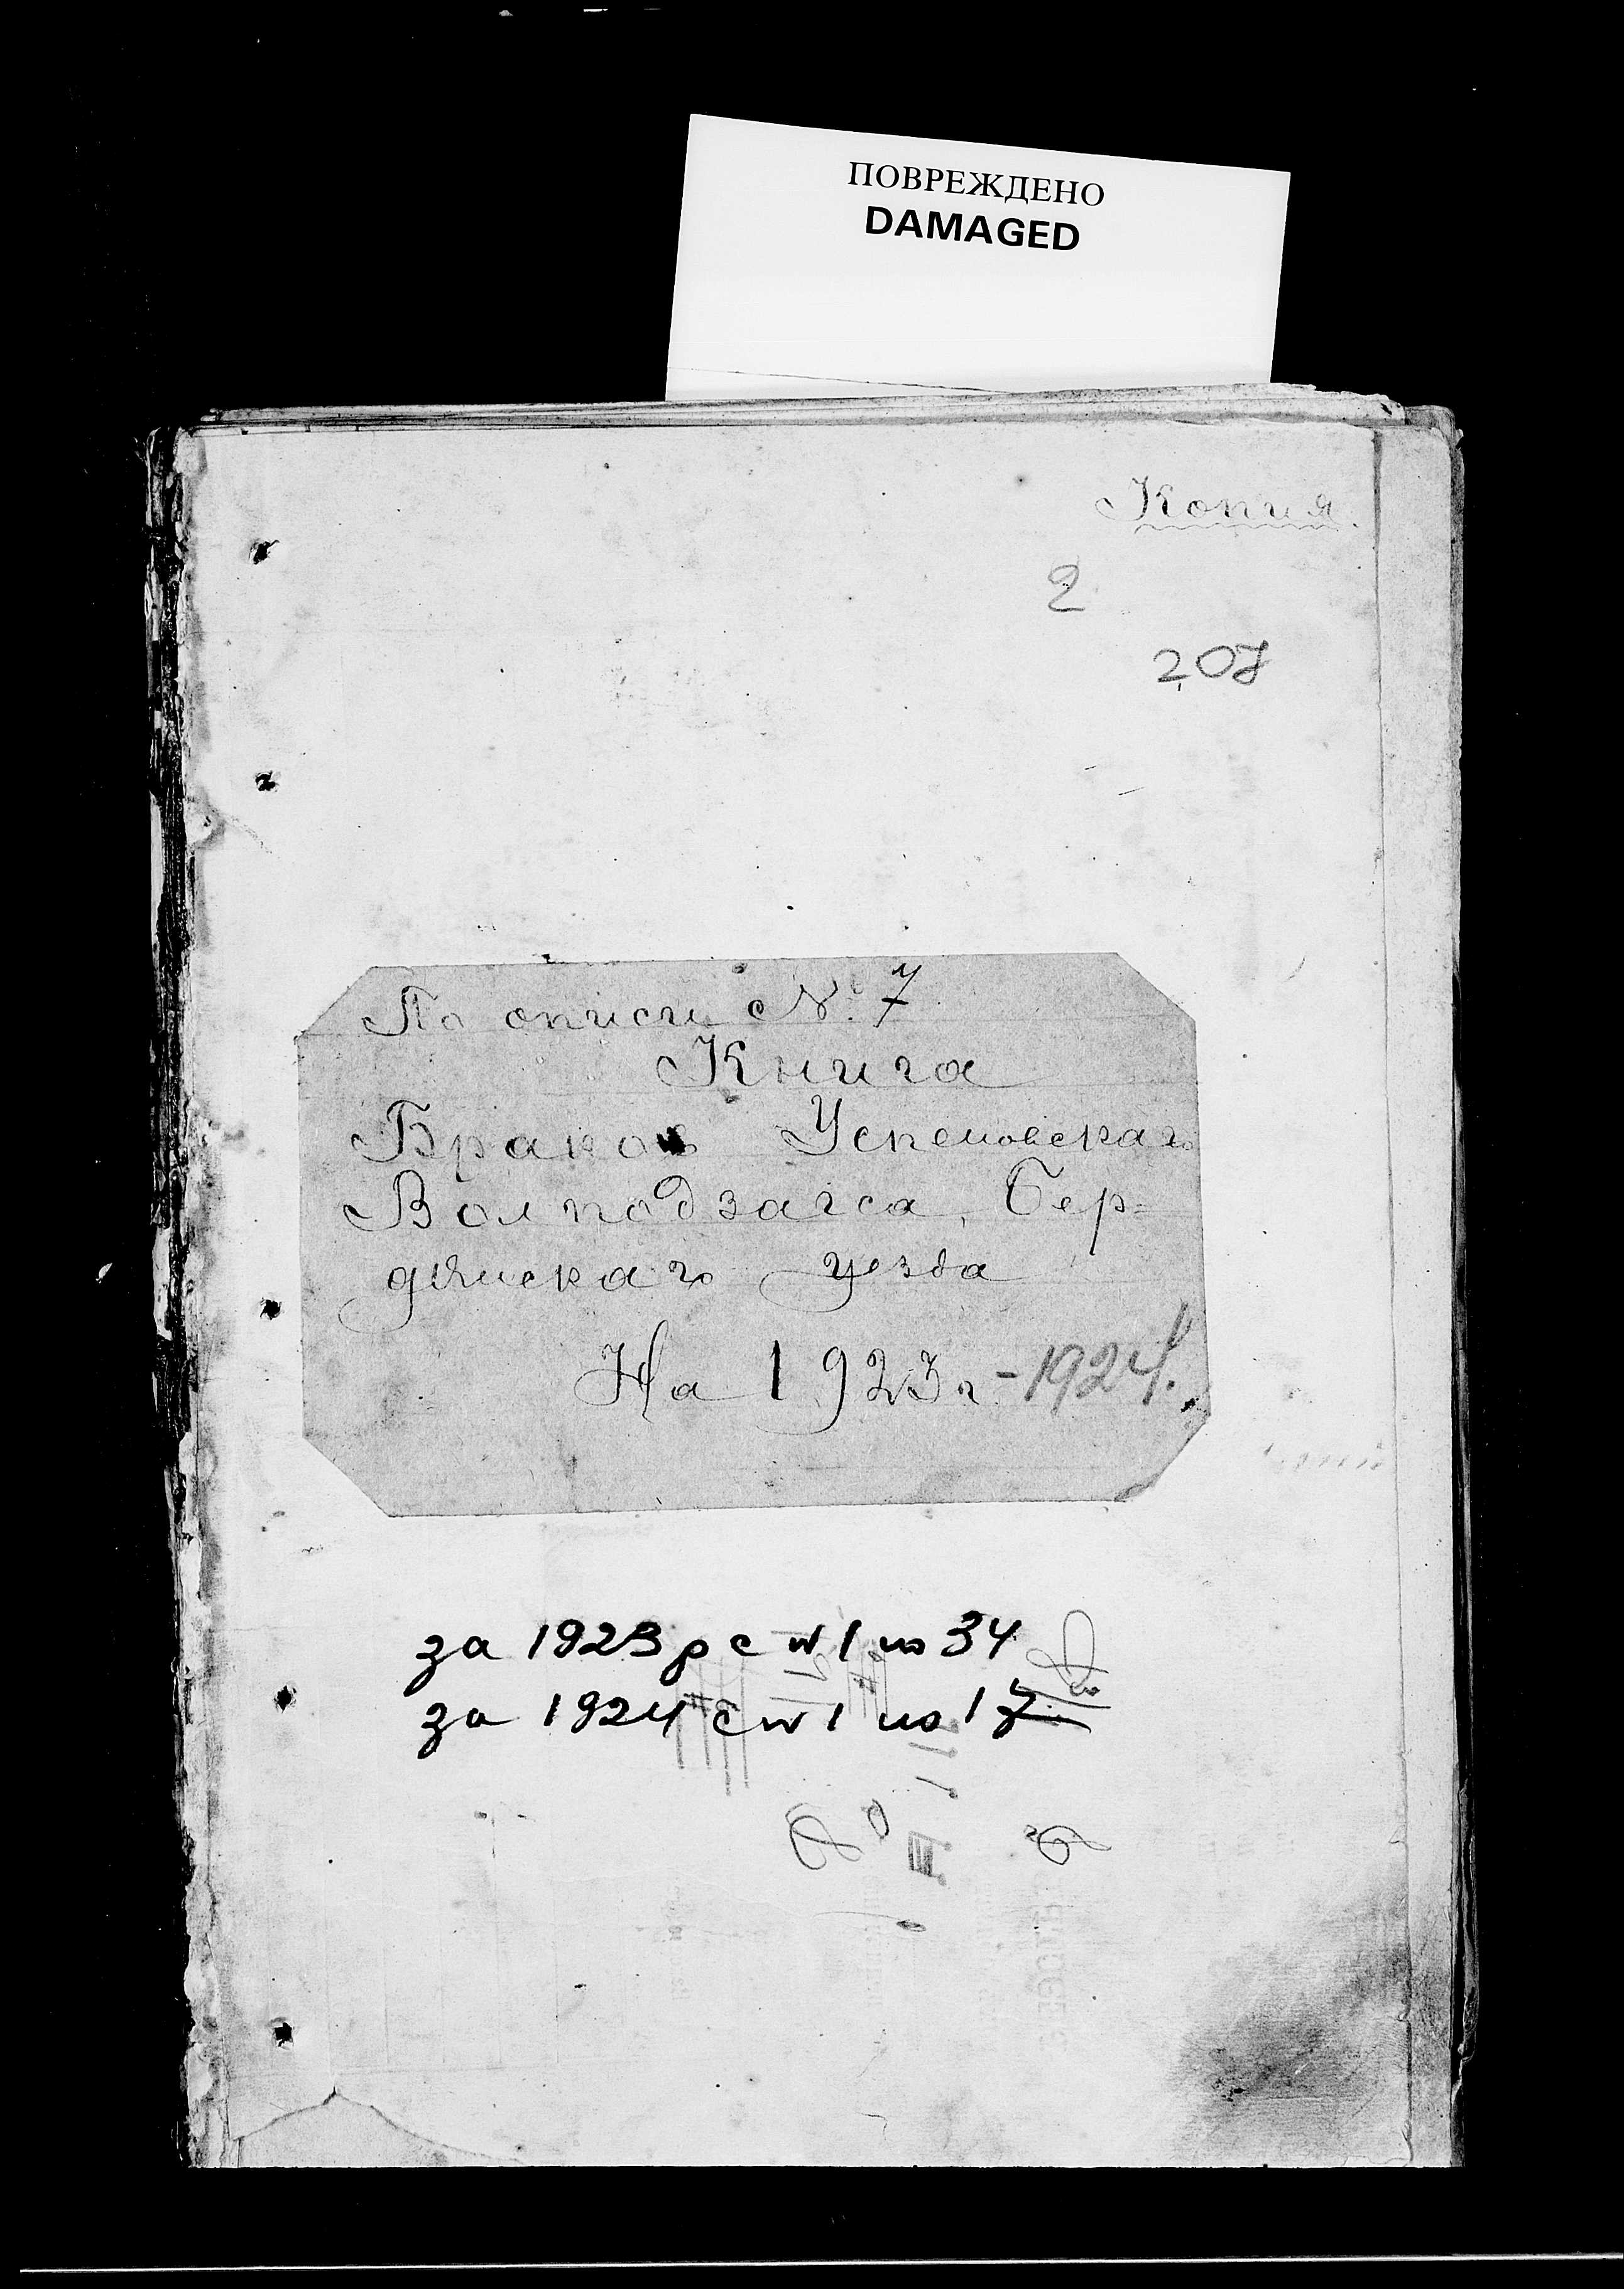 ПОВРЕЖДЕНО
DAMAGED
Копия.
2
207
По описи №: 7
Книга
Браков Успеновскаго
Волподзагса, Бер=
дянскаго уезда
На 1923 г. - 1924.
за 1923 р с № 1 по 34
за 1924 с № 1 по 17